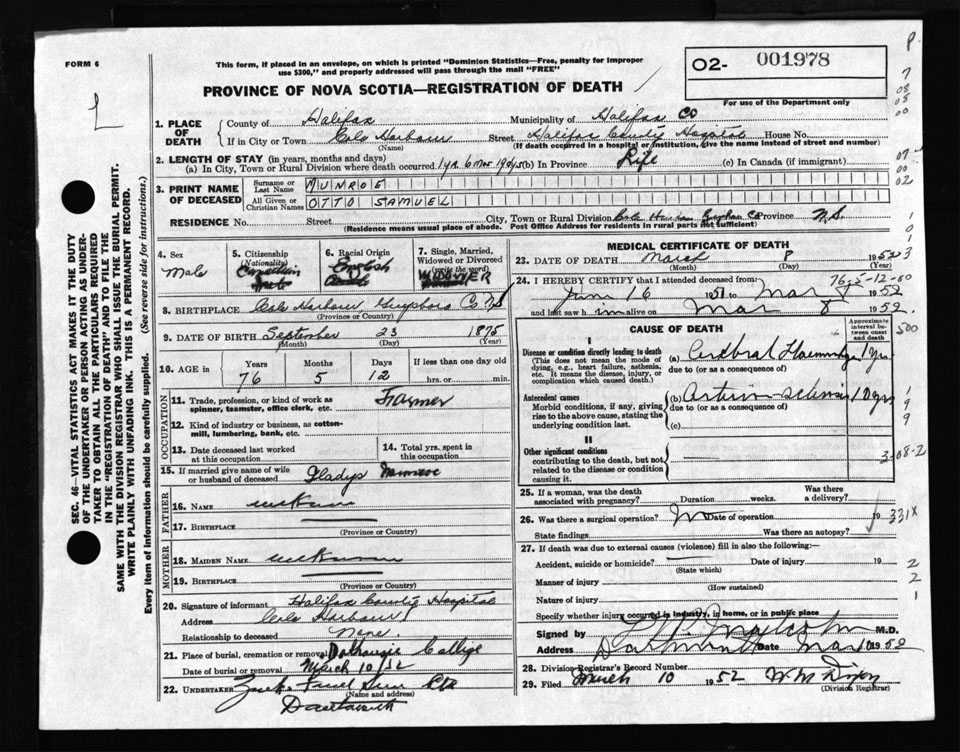 FORM 6
This form, if placed in an envelope, on which is printed "Dominion Statistics—Free, penalty for improper
use $300," and properly addressed will pass through the mail "FREE"
O2- 001978
For use of the Department only
PROVINCE OF NOVA SCOTIA—REGISTRATION OF DEATH
1. PLACE OF DEATH
County of Halifax Municipality of Halifax Co
If in City or Town Cole Harbour Street Halifax County Hospital House No.
(Name) (If death occurred in a hospital or institution, give the name instead of street and number)
2. LENGTH OF STAY (in years, months and days)
(a) In City, Town or Rural Division where death occurred 1 yr. 6 mos. 19 dys (b) In Province Life (c) In Canada (if immigrant)
3. PRINT NAME OF DECEASED
Surname or Last Name MUNROE
All Given or Christian Names OTTO SAMUEL
RESIDENCE No. Street City, Town or Rural Division Cole Harbour Co Province N.S.
(Residence means usual place of abode. Post Office Address for residents in rural parts not sufficient)
4. Sex
Male
5. Citizenship
(Nationality)
Canadian
6. Racial Origin
English
7. Single, Married, Widowed or Divorced
(write the word)
WIDOWER
8. BIRTHPLACE Cole Harbour, Guysboro Co NS
(Province or Country)
9. DATE OF BIRTH September 23 1875
(Month) (Day) (Year)
10. AGE in
Years Months Days If less than one day old
76 5 12 hrs. or min.
OCCUPATION
11. Trade, profession, or kind of work as
spinner, teamster, office clerk, etc. Farmer
12. Kind of industry or business, as cotton-
mill, lumbering, bank, etc.
13. Date deceased last worked
at this occupation
14. Total yrs. spent in
this occupation
15. If married give name of wife
or husband of deceased Gladys Munroe
FATHER
16. NAME unknown
17. BIRTHPLACE
(Province or Country)
MOTHER
18. MAIDEN NAME unknown
19. BIRTHPLACE
(Province or Country)
20. Signature of informant Halifax County Hospital
Address Cole Harbour
Relationship to deceased None.
21. Place of burial, cremation or removal Dalhousie College
Date of burial or removal March 10/52
22. UNDERTAKER
(Name and address)
Dartmouth
MEDICAL CERTIFICATE OF DEATH
23. DATE OF DEATH March 8 1952
(Month) (Day) (Year)
24. I HEREBY CERTIFY that I attended deceased from:
June 16 1951 to Mar 8 1952
and last saw him alive on Mar 8 1952.
CAUSE OF DEATH
Approximate interval between onset and death
I
Disease or condition directly leading to death
(This does not mean the mode of
dying, e.g., heart failure, asthenia,
etc. It means the disease, injury, or
complication which caused death.)
(a) Cerebral Haemorrhage 1 yr.
due to (or as a consequence of)
Antecedent causes
Morbid conditions, if any, giving
rise to the above cause, stating the
underlying condition last.
(b) Arterio sclerosis 10 yrs
due to (or as a consequence of)
(c)
II
Other significant conditions
contributing to the death, but not
related to the disease or condition
causing it.
25. If a woman, was the death
associated with pregnancy? Duration weeks. Was there a delivery?
26. Was there a surgical operation? No Date of operation 19
State findings Was there an autopsy?
27. If death was due to external causes (violence) fill in also the following:—
Accident, suicide or homicide? Date of injury 19
(State which)
Manner of injury
(How sustained)
Nature of injury
Specify whether injury occurred in industry, in home, or in public place
Signed by M.D.
Address Dartmouth Date Mar 10 1952
28. Division Registrar's Record Number
29. Filed March 10 1952 W M Dixon
(Division Registrar)
SEC. 46—VITAL STATISTICS ACT MAKES IT THE DUTY
OF THE UNDERTAKER OR PERSON ACTING AS UNDER-
TAKER TO OBTAIN ALL THE PARTICULARS REQUIRED
IN THE "REGISTRATION OF DEATH" AND TO FILE THE
SAME WITH THE DIVISION REGISTRAR WHO SHALL ISSUE THE BURIAL PERMIT.
WRITE PLAINLY WITH UNFADING INK. THIS IS A PERMANENT RECORD.
Every item of information should be carefully supplied. (See reverse side for instructions.)
76-5-12-00
500
331X